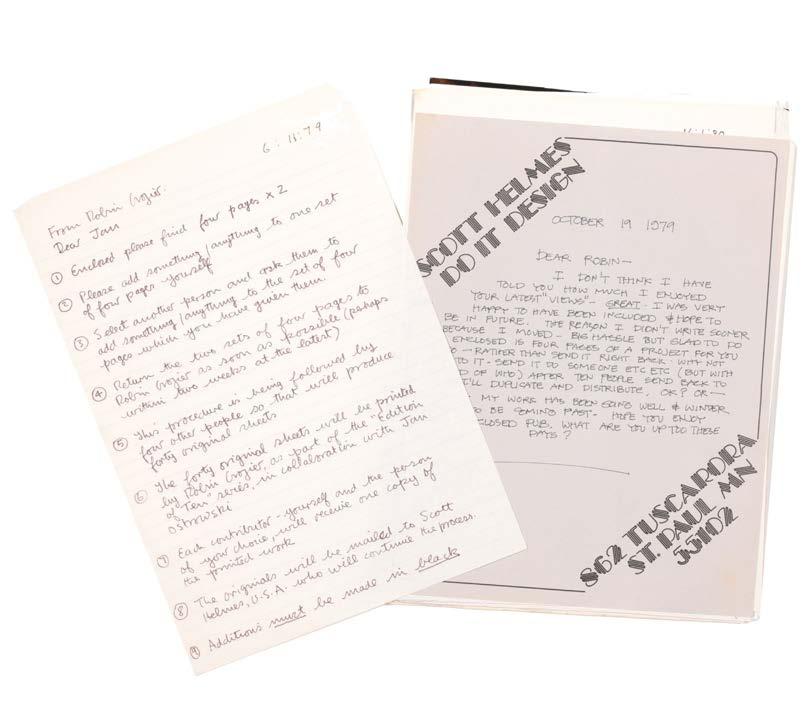 6 : 11 : 79
From Robin Crozier:
Dear Jan
① Enclosed please find four pages x 2
② Please add something/anything to one set
of four pages yourself
③ Select another person and ask them to
add something/anything to the set of four
pages which you have given them.
④ Return the two sets of four pages to
Robin Crozier as soon as possible (perhaps
within two weeks at the latest)
⑤ This procedure is being followed by
four other people so that will produce
forty original sheets
⑥ The forty original sheets will be printed
by Robin Crozier, as part of the "Edition
of Ten" series, in collaboration with Jan
Ostrowski
⑦ Each contributor - yourself and the person
of your choice, will receive one copy of
the printed work
⑧ The originals will be mailed to Scott
Helmes, U.S.A. who will continue the process.
⑨ Additions must be made in black
SCOTT HELMES
DO IT DESIGN
OCTOBER 19 1979
DEAR ROBIN—
I DON'T THINK I HAVE
TOLD YOU HOW MUCH I ENJOYED
YOUR LATEST "VIEWS"— GREAT. I WAS VERY
HAPPY TO HAVE BEEN INCLUDED & HOPE TO
BE IN FUTURE. THE REASON I DIDN'T WRITE SOONER
BECAUSE I MOVED— BIG HASSLE BUT GLAD TO DO
ENCLOSED IS FOUR PAGES OF A PROJECT FOR YOU
— RATHER THAN SEND IT RIGHT BACK. WHY NOT
TO IT - SEND IT TO SOMEONE ETC ETC (BUT WITH
OF WHO) AFTER TEN PEOPLE SEND BACK TO
I'LL DUPLICATE AND DISTRIBUTE, OK? OR—
MY WORK HAS BEEN GOING WELL & WINTER
TO BE COMING FAST— HOPE YOU ENJOY
CLOSED PUB. WHAT ARE YOU UP TOO THESE
DAYS?
862 TUSCARORA
ST. PAUL MN
55102